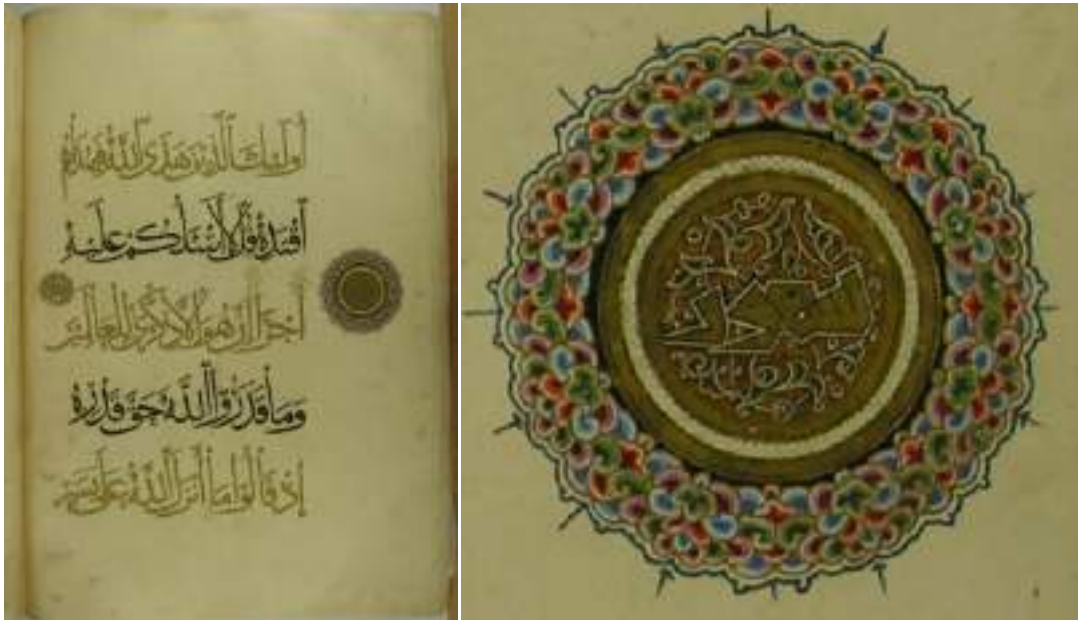 أُولَئِكَ الَّذِينَ هَدَى اللَّهُ فَبِهُدَاهُمُ
اقْتَدِهْ قُل لَّا أَسْئَلُكُمْ عَلَيْهِ
أَجْرًا إِنْ هُوَ إِلَّا ذِكْرَى لِلْعَالَمِينَ
وَمَا قَدَرُوا اللَّهَ حَقَّ قَدْرِهِ
إِذْ قَالُوا مَا أَنزَلَ اللَّهُ عَلَى بَشَرٍ